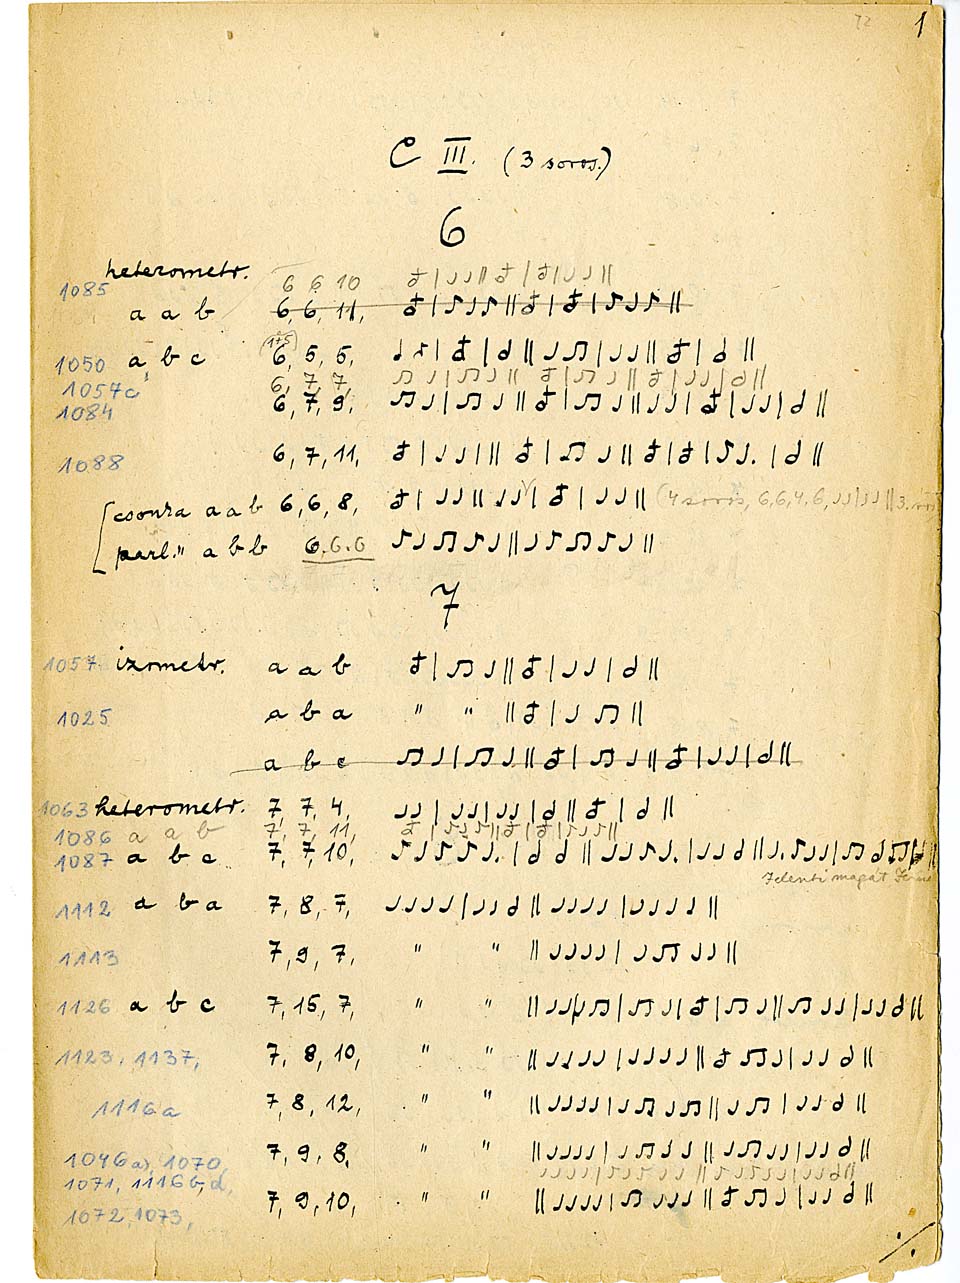 72 1
C III. (3 soros.)
6
heterometr. 6 6 10
1085
a a b 6, 6, 11,
(1+5)
1050 a b c 6, 5, 5,
1057c 6, 7, 7,
1084 6, 7, 9,
1088 6, 7, 11,
csonka a a b 6, 6, 8, (4 soros, 6,6,4,6,
parl. " a b b 6.6.6
7
1057 izometr. a a b
1025 a b a " "
a b c
1063 heterometr. 7, 7, 4,
1086 a a b 7, 7, 11,
1087 a b c 7, 7, 10,
Jelenti magát
1112 a b a 7, 8, 7,
1113 7, 9, 7, " "
1126 a b c 7, 15, 7, " "
1123, 1137, 7, 8, 10, " "
1116a 7, 8, 12, " "
1046a), 1070, 7, 9, 8, " "
1071, 1116b,d,
7, 9, 10, " "
1072, 1073,
./.